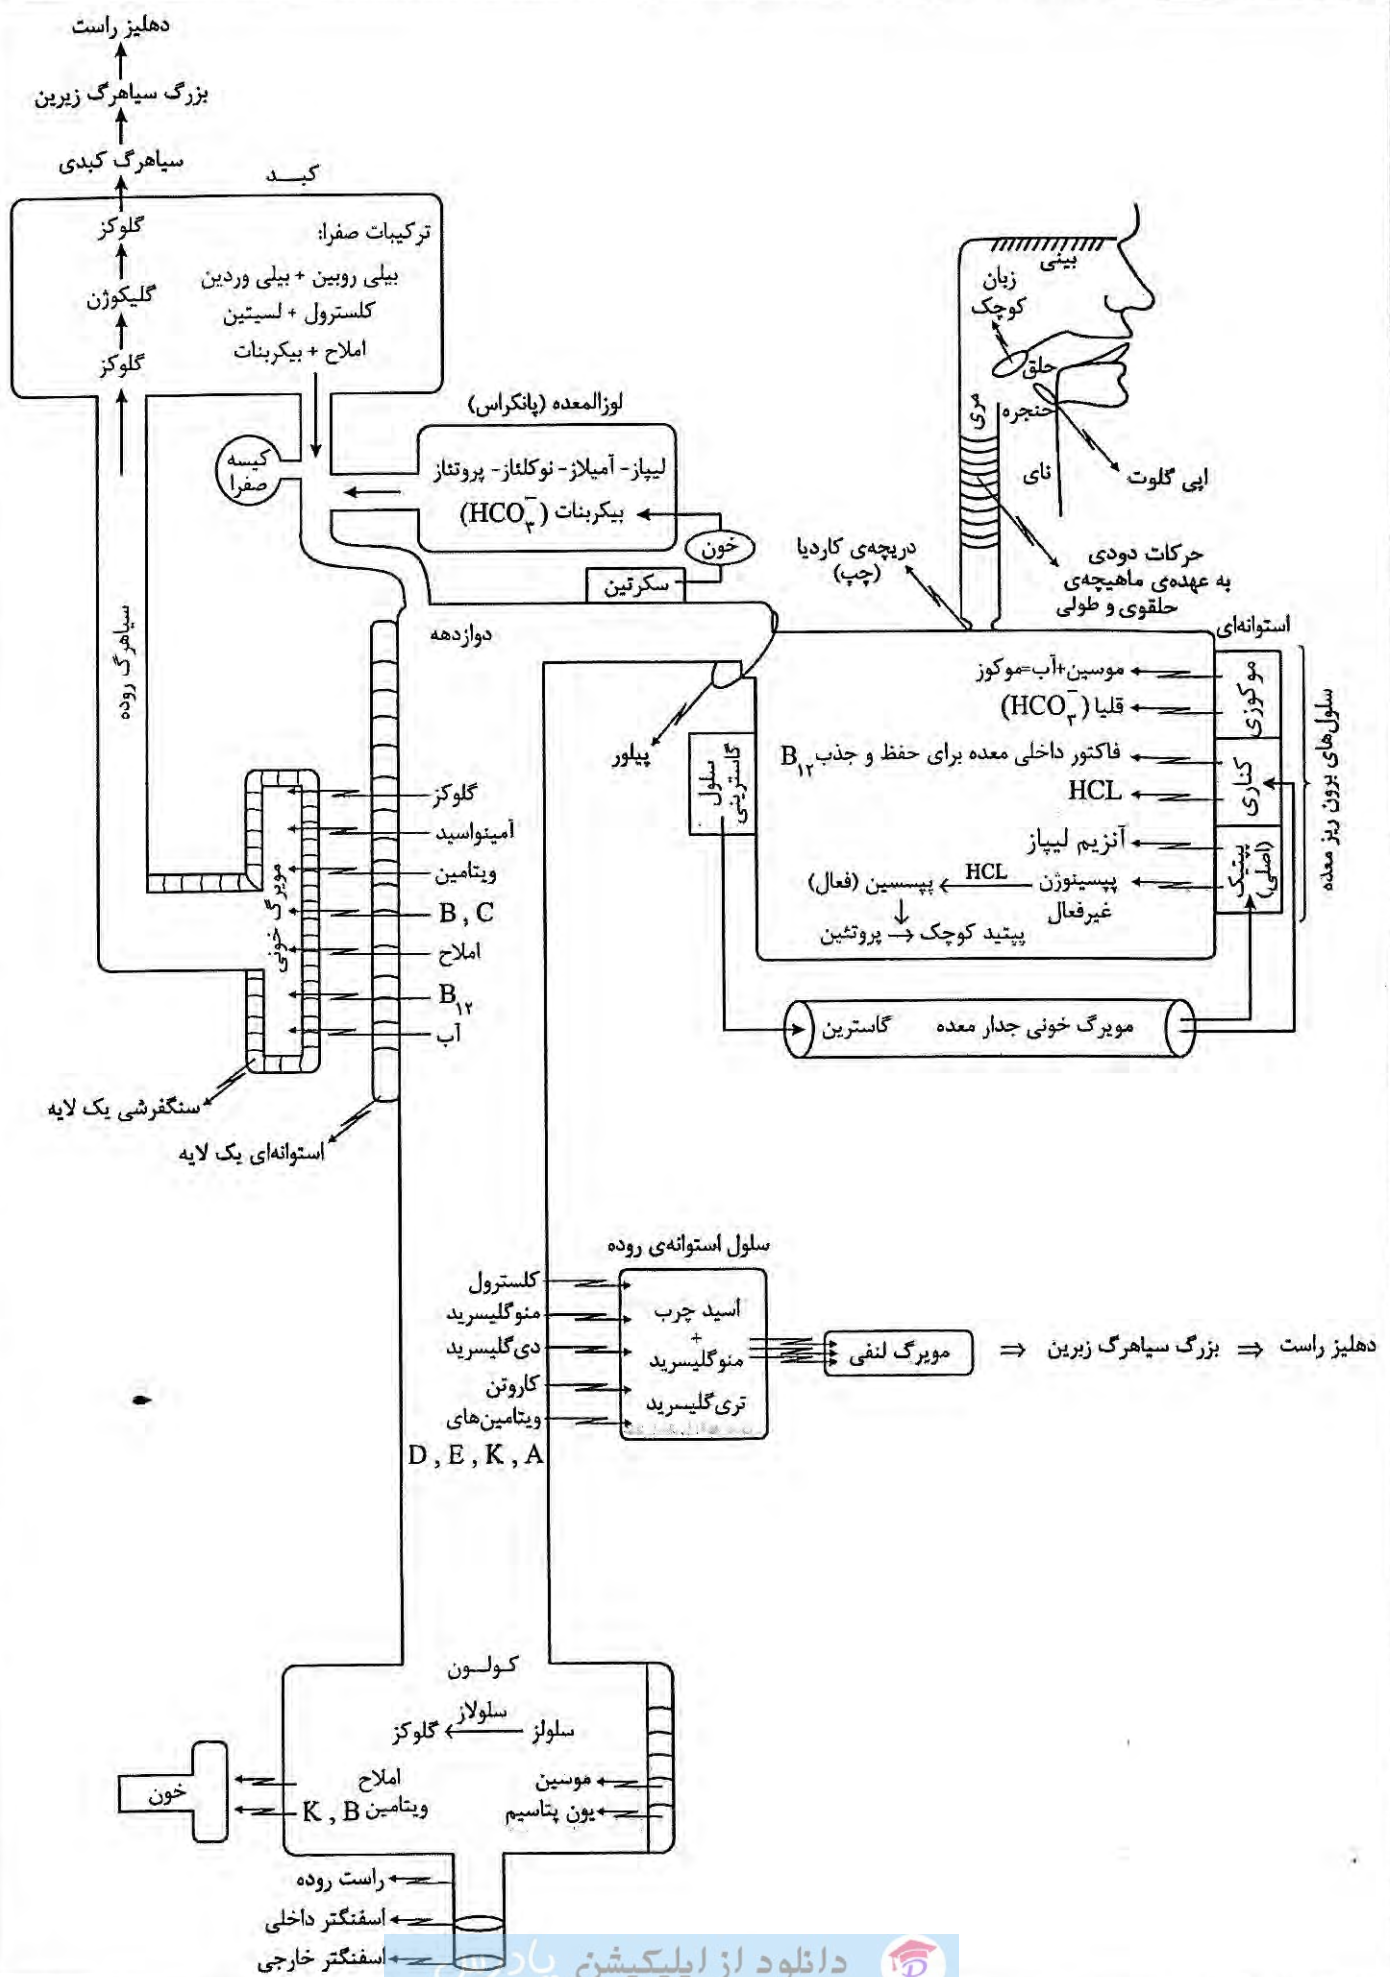 دهلیز راست
بزرگ سیاهرگ زیرین
سیاهرگ کبدی
کبـــد
گلوکز
گلیکوژن
گلوکز
ترکیبات صفرا:
بیلی روبین + بیلی وردین
کلسترول + لسیتین
املاح + بیکربنات
کیسه
صفرا
لوزالمعده (پانکراس)
لیپاز - آمیلاز - نوکلئاز - پروتئاز
بیکربنات (HCO₃⁻)
خون
سکرتین
بینی
زبان
کوچک
حلق
حنجره
مری
نای
اپی گلوت
حرکات دودی
به عهده‌ی ماهیچه‌ی
حلقوی و طولی
دریچه‌ی کاردیا
(چپ)
استوانه‌ای
موکوزی
کناری
پپتیک
(اصلی)
سلول‌های برون ریز معده
موسین+آب=موکوز
قلیا (HCO₃⁻)
فاکتور داخلی معده برای حفظ و جذب B۱۲
HCL
آنزیم لیپاز
پپسینوژن HCL پپسین (فعال)
غیرفعال
پپتید کوچک → پروتئین
سلول
گاسترینی
پیلور
مویرگ خونی جدار معده گاسترین
دوازدهه
سیاهرگ روده
مویرگ خونی
گلوکز
آمینواسید
ویتامین
B , C
املاح
B۱۲
آب
سنگفرشی یک لایه
استوانه‌ای یک لایه
سلول استوانه‌ی روده
کلسترول
منوگلیسرید
دی‌گلیسرید
کاروتن
ویتامین‌های
D , E , K , A
اسید چرب
+
منوگلیسرید
تری‌گلیسرید
مویرگ لنفی ⇒ بزرگ سیاهرگ زبرین ⇒ دهلیز راست
کـولــون
سلولز سلولاز گلوکز
املاح
ویتامین K , B
خون
موسین
یون پتاسیم
راست روده
اسفنگتر داخلی
اسفنگتر خارجی
دانلود از اپلیکیشن پادرس